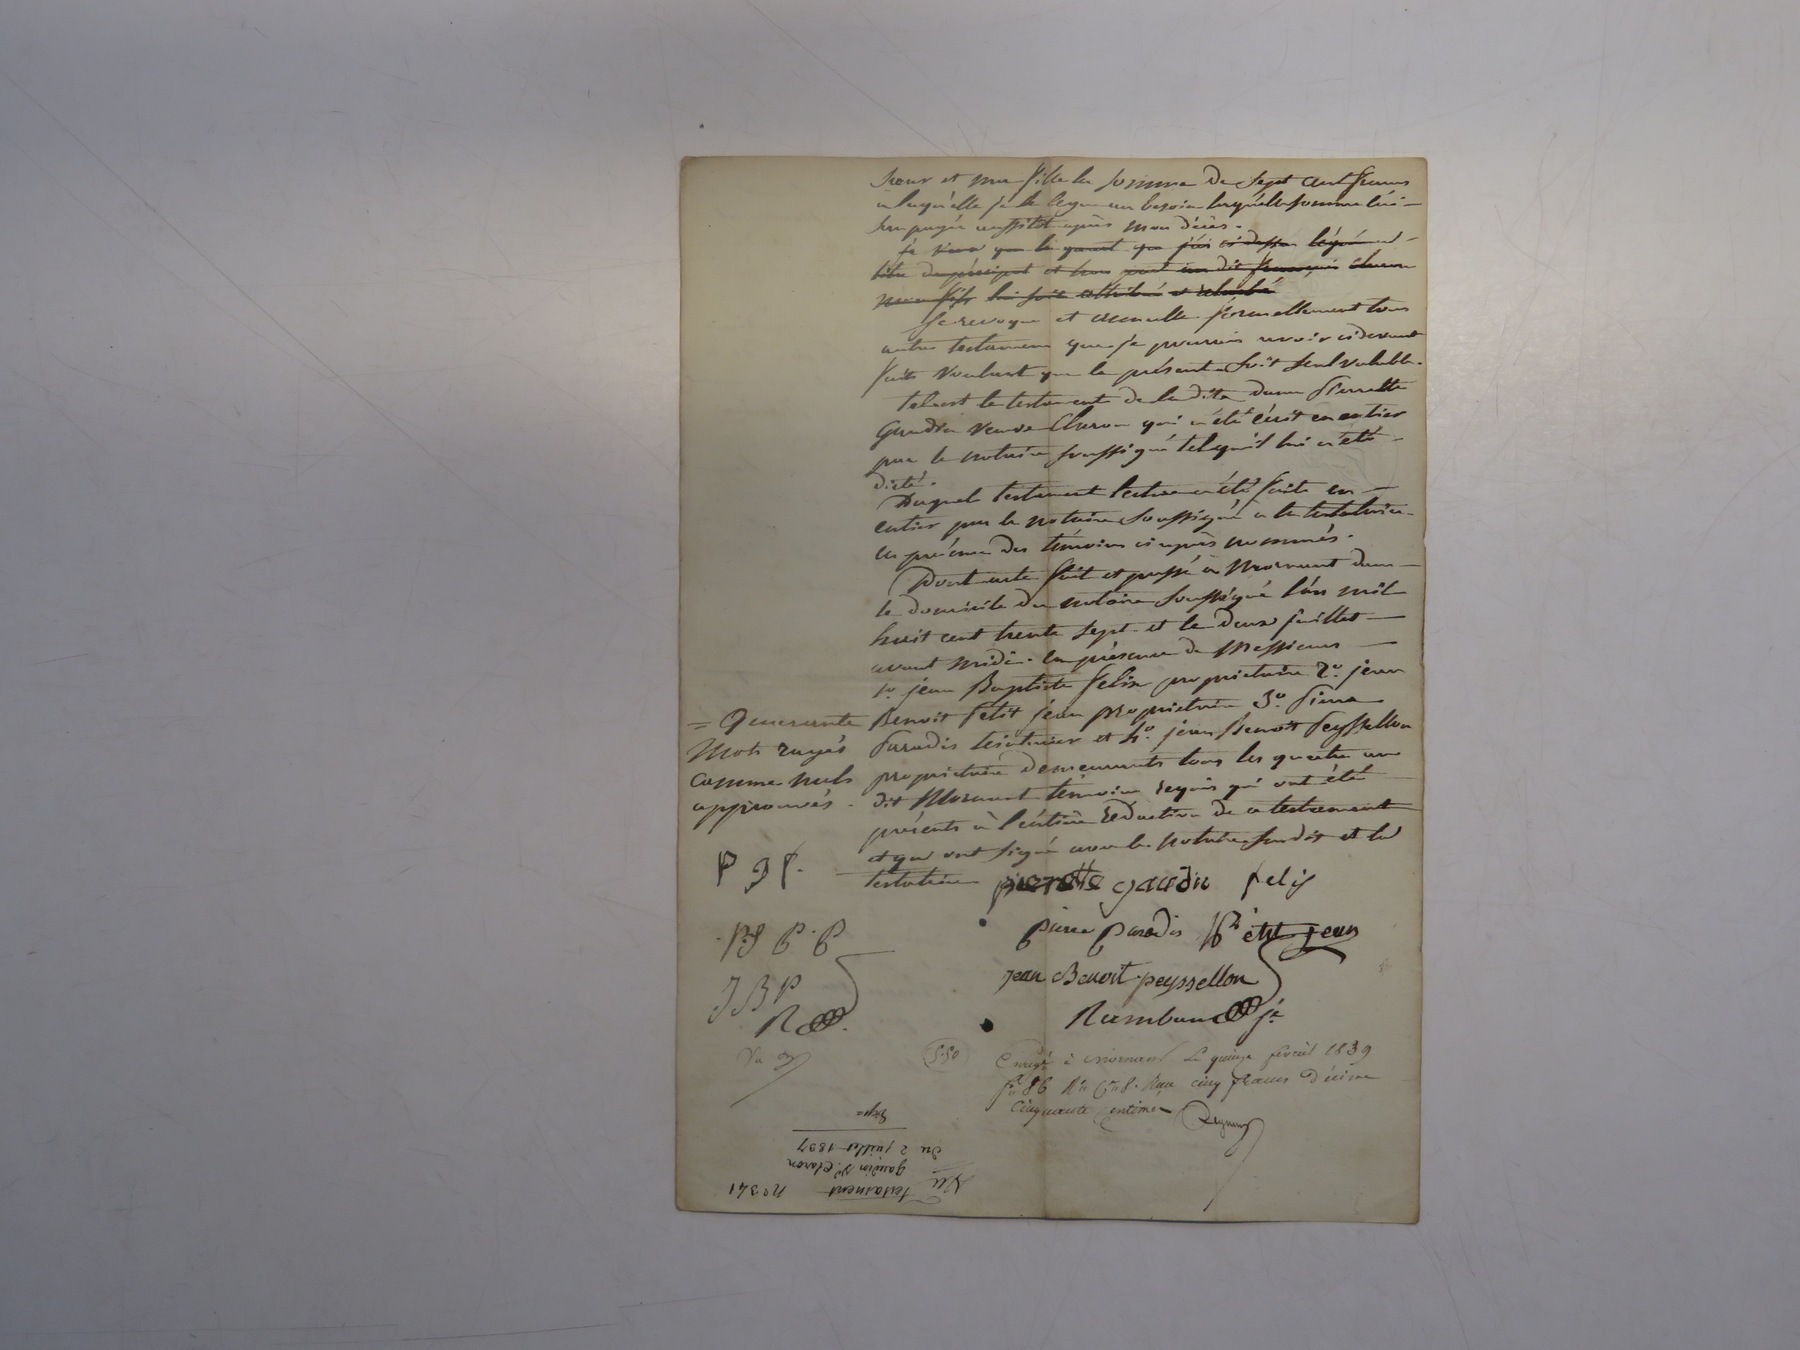 Sœur et ma fille la somme de Sept cent francs
a laquelle je la legue au besoin laquelle somme lui
sera payée aussitot après mon décès.
je veux que le quart que j'ai ci dessus légué au
titre de préciput et hors part au dit François Claron
mon fils lui soit attribué
Je revoque et annulle formellement tous
autres testamens que je pourrais avoir cidevant
faits voulant que le présent soit seul valable.
Tel est le testament de la dite dame Pierrette
Gaudin veuve Claron qui a été écrit en entier
par le notaire soussigné tel qu'il lui a été
dicté.
Duquel testament lecture a été faite en
entier par le notaire soussigné a la testatrice
en présence des témoins ci après nommés.
Dont acte fait et passé à Mornant dans
le domicile du notaire soussigné l'an mil
huit cent trente sept et le deux juillet
avant midi. en présence de Messieurs
1º. jean Baptiste Felix propriétaire 2º. jean
Benoit Petit jean propriétaire 3º. Pierre
Paradis teinturier et 4º. jean Benoit Peyssellon
propriétaire demeurants tous les quatre au
dit Mornant témoins requis qui ont été
présents à l'entière rédaction de ce testament
et qui ont signé avec le notaire susdit et la
testatrice
= Quarante
Mots rayés
comme nuls
approuvés.
pierrette gaudin felix
pierre paradis Petit jean
jean Benoit peyssellon
P g f.
B P. P
J B P
R
Vu
5.50
Enregé à Mornant le quinze février 1839
fº 86 Rº Cse 8. Reçu cinq francs décime
cinquante centimes
Nº 341
testament
gaudin Ve. Claron
du 2 juillet 1837
Expé